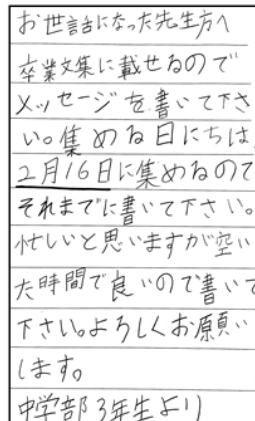 お世話になった先生方へ
卒業文集に載せるので
メッセージを書いて下さ
い。集める日にちは、
2月16日に集めるので
それまでに書いて下さい。
忙しいと思いますが空い
た時間で良いので書いて
下さい。よろしくお願い
します。
中学部3年生より